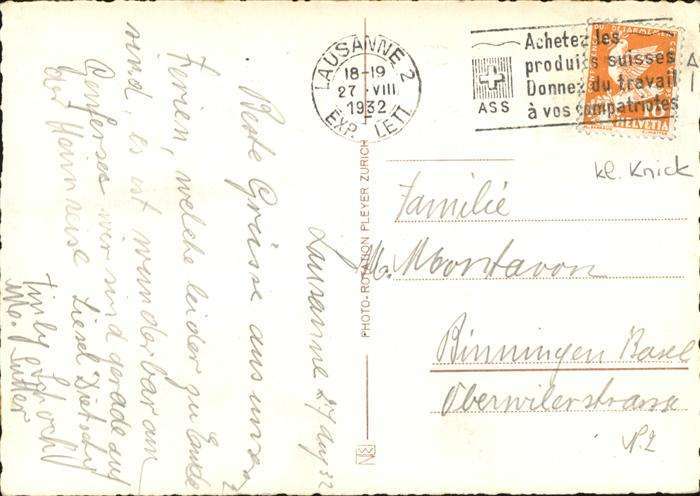 LAUSANNE 2
18-19
27 · VIII
1932
EXP. LETT.
ASS
Achetez les
produits suisses
Donnez du travail
à vos compatriotes
10
HELVETIA
kl. Knick
Familie
M. Montavon
Binningen Basel
Oberwilerstrasse
N. 2
PHOTO-ROTATION PLEYER ZURICH
Lausanne 27 Aug 32
Beste Grüsse aus unsern
Ferien, welche leider zu Ende
sind, es ist wunderbar am
Genfersee wir sind gerade auf
der Heimreise Liesel